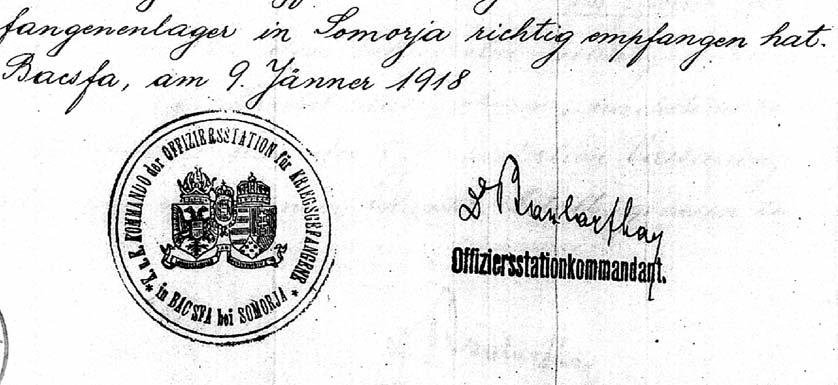 fangenenlager in Somorja richtig empfangen hat.
Bacsfa, am 9. Jänner 1918
* K. u. K. KOMMANDO der OFFIZIERSSTATION für KRIEGSGEFANGENE *
in BACSFA bei SOMORJA
Offiziersstationkommandant.